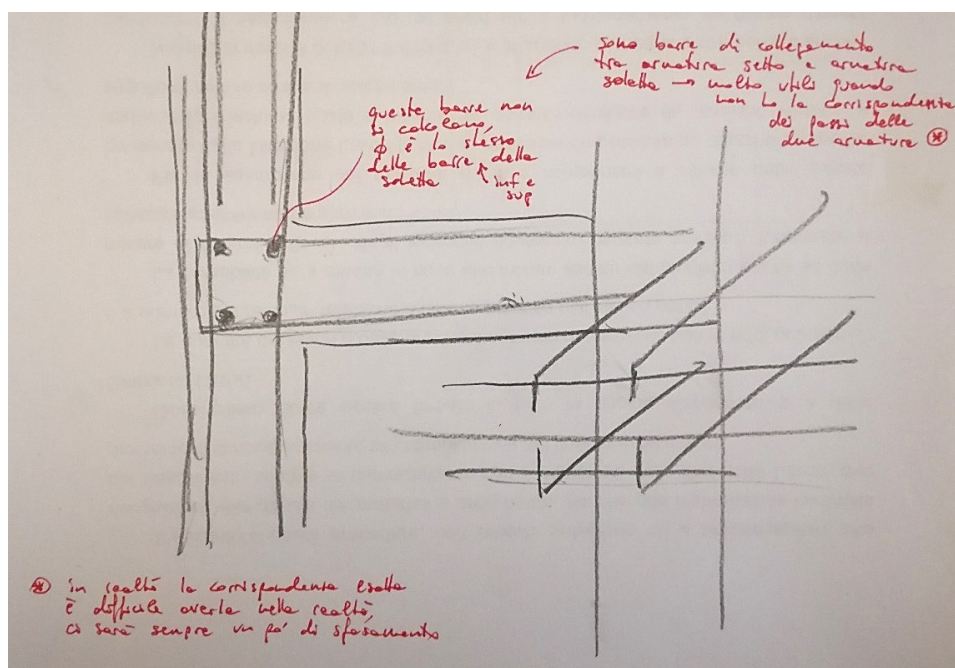 sono barre di collegamento
tra armatura setto e armatura
soletta → molto utili quando
non ho la corrispondenza
dei passi delle
due armature ⊛
queste barre non
si calcolano,
φ è lo stesso
delle barre della
soletta ↑ inf e
sup
⊛ in realtà la corrispondenza esatta
è difficile averla nella realtà,
ci sarà sempre un pó di sfasamento